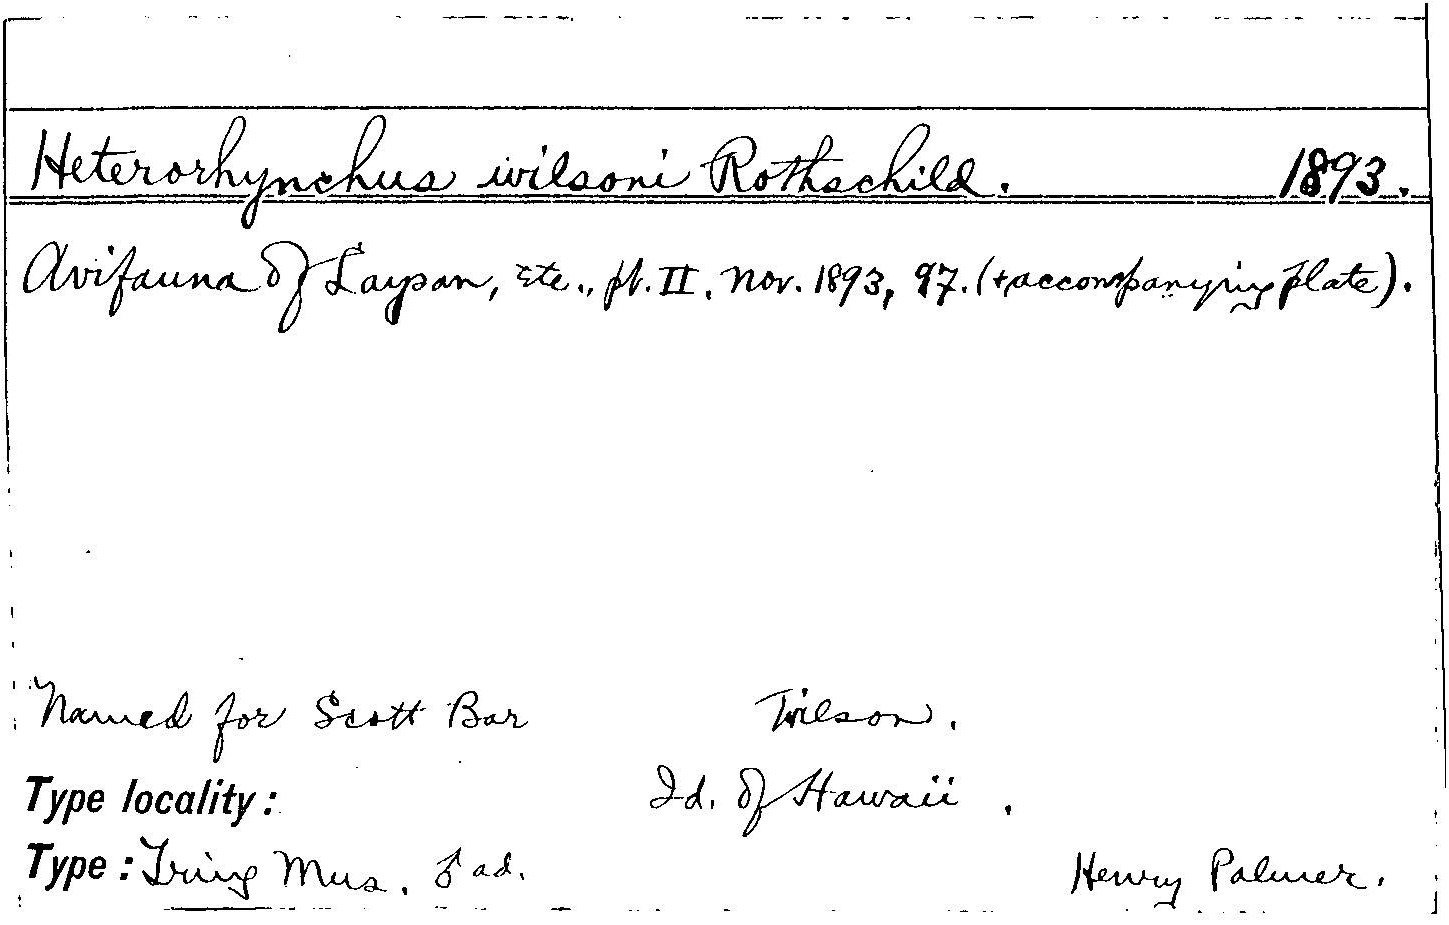 Heterorhynchus wilsoni Rothschild. 1893.
Avifauna of Laysan, Etc., pt. II, Nov. 1893, 97. (+accompanying plate).
Named for Scott Bar Wilson.
Type locality: Id. of Hawaii.
Type: Tring Mus. ♂ ad. Henry Palmer.